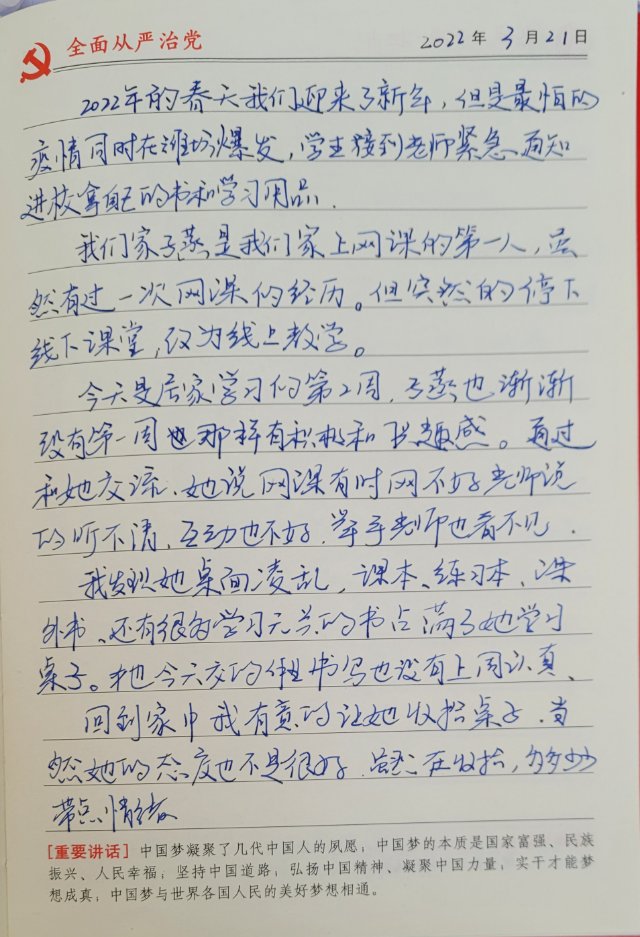 全面从严治党
2022年3月21日
2022年的春天我们迎来了新年，但是最怕的
疫情同时在潍坊爆发，学生接到老师紧急通知
进校拿自己的书和学习用品．
我们家子燕是我们家上网课的第一人，虽
然有过一次网课的经历。但突然的停下
线下课堂，改为线上教学。
今天是居家学习的第2周，子燕也渐渐
没有第一周那样有积极和兴趣感。通过
和她交流、她说网课有时网不好老师说
的听不清，互动也不好，举手老师也看不见．
我发现她桌面凌乱，课本、练习本、课
外书、还有很多学习无关的书占满了她学习
桌子。她今天交的作业书写也没有上周认真、
回到家中我有意的让她收拾桌子．当
然她的态度也不是很好．虽 在收拾，多多少少
带点情绪
[重要讲话] 中国梦凝聚了几代中国人的夙愿；中国梦的本质是国家富强、民族
振兴、人民幸福；坚持中国道路；弘扬中国精神、凝聚中国力量；实干才能梦
想成真；中国梦与世界各国人民的美好梦想相通。